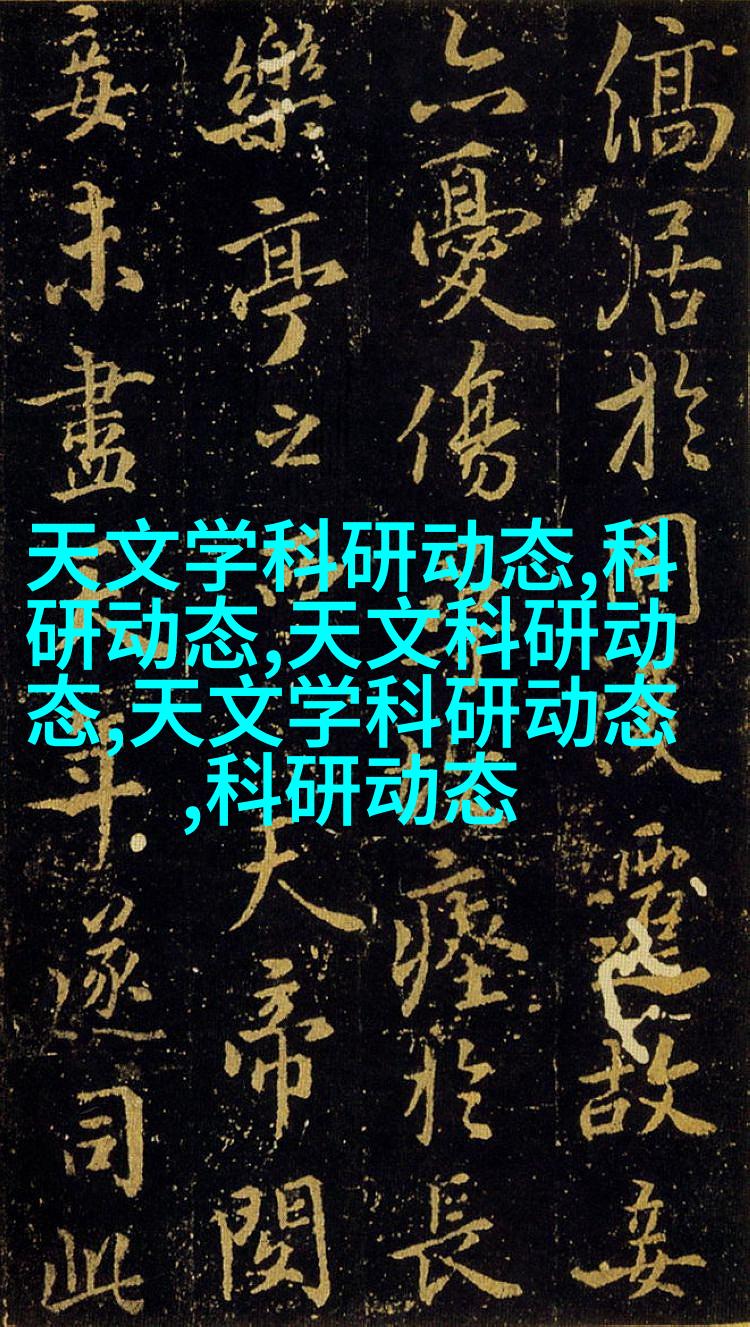 居於同遷故妾
憂傷瘞於長
樂亭之西帝閔
妾未盡天年遂司此
天文学科研动态,科
研动态,天文科研动
态,天文学科研动态
,科研动态